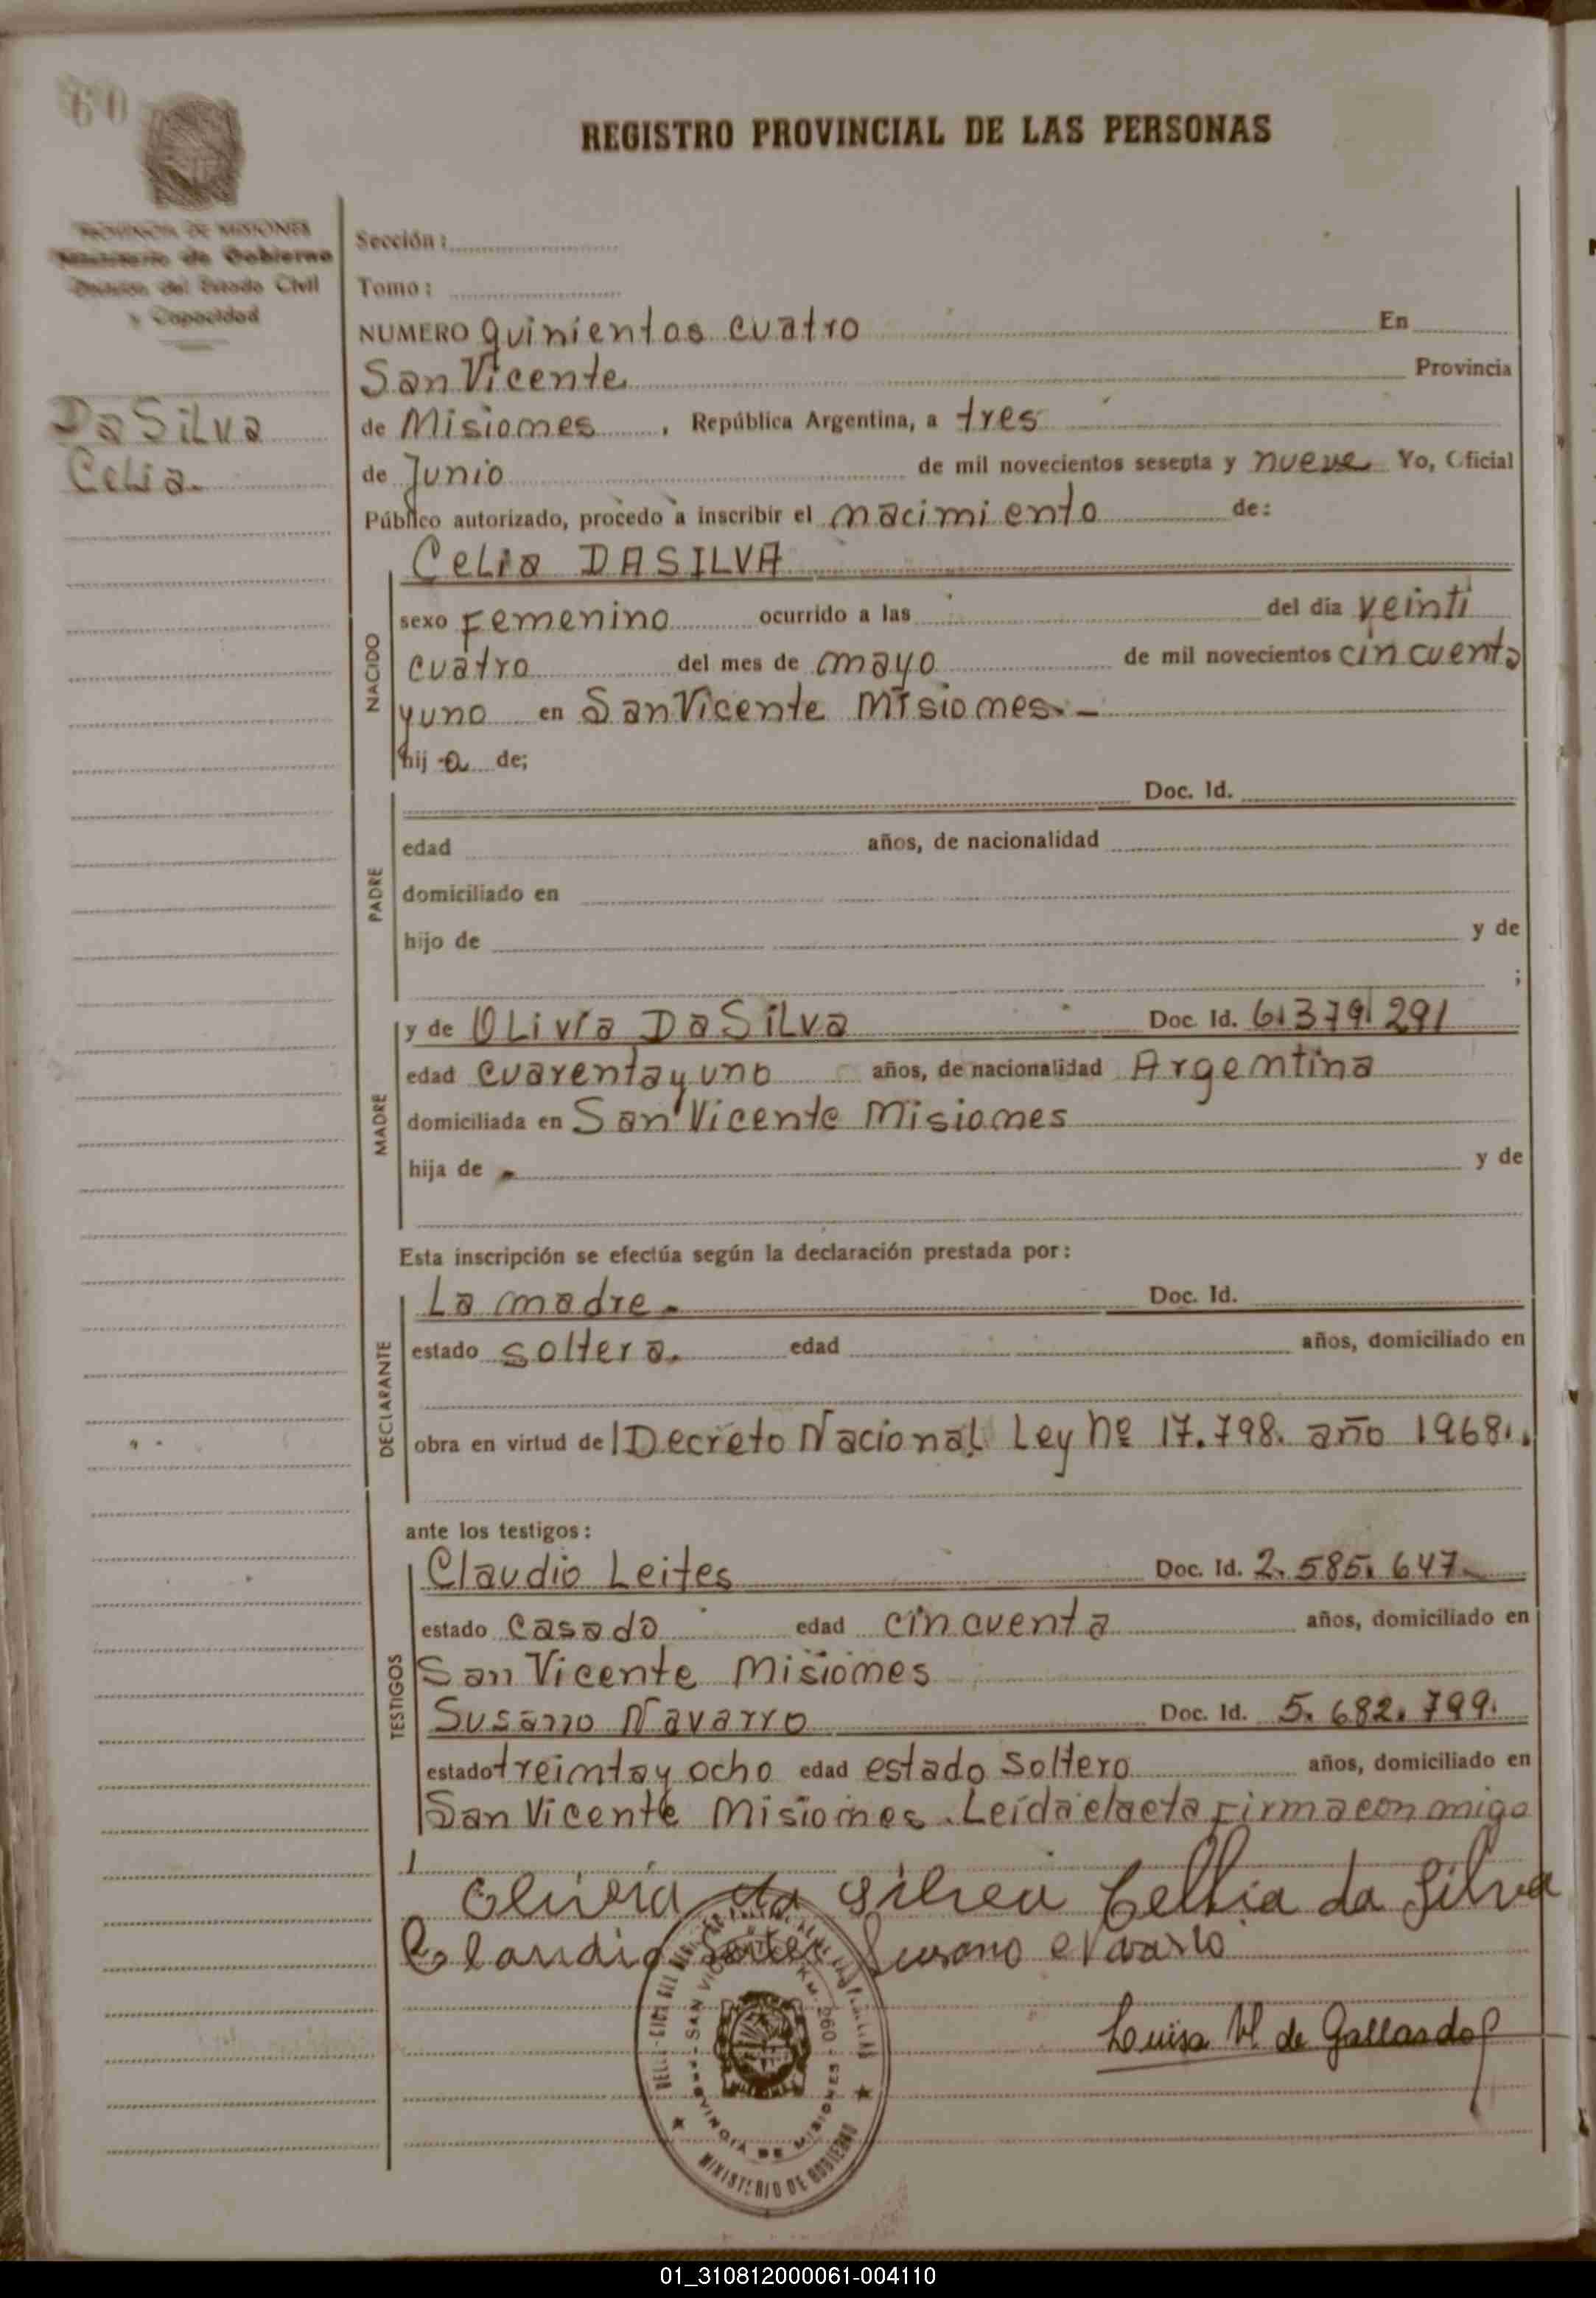 60
REGISTRO PROVINCIAL DE LAS PERSONAS
PROVINCIA DE MISIONES
Ministerio de Gobierno
Dirección del Estado Civil
y Capacidad
Da Silva
Celia.
Sección:
Tomo:
NUMERO quinientos cuatro En
San Vicente Provincia
de Misiones, República Argentina, a tres
de Junio de mil novecientos sesenta y nueve Yo, Oficial
Público autorizado, procedo a inscribir el nacimiento de:
NACIDO
Celia DASILVA
sexo Femenino ocurrido a las del dia veinti
cuatro del mes de mayo de mil novecientos cincuenta
y uno en San Vicente Misiones.-
hij a de;
PADRE
Doc. Id.
edad años, de nacionalidad
domiciliado en
hijo de y de
;
MADRE
y de Olivia Da Silva Doc. Id. 6.379.291
edad cuarenta y uno años, de nacionalidad Argentina
domiciliada en San Vicente Misiones
hija de y de
Esta inscripción se efectúa según la declaración prestada por:
DECLARANTE
La madre. Doc. Id.
estado soltera. edad años, domiciliado en
obra en virtud de Decreto Nacional Ley Nº 17.798. año 1968.
ante los testigos:
TESTIGOS
Claudio Leites Doc. Id. 2.585.647
estado casado edad cincuenta años, domiciliado en
San Vicente Misiones
Susano Navarro Doc. Id. 5.682.799.
estado treinta y ocho edad estado soltero años, domiciliado en
San Vicente Misiones. Leida el acta firma con migo
Olivia da Silva Cellia da Silva
Claudio Leites Susano Navarro
SAN VICENTE KM. 260
PROVINCIA DE MISIONES
MINISTERIO DE GOBIERNO
Luisa de Gallardo
01_310812000061-004110